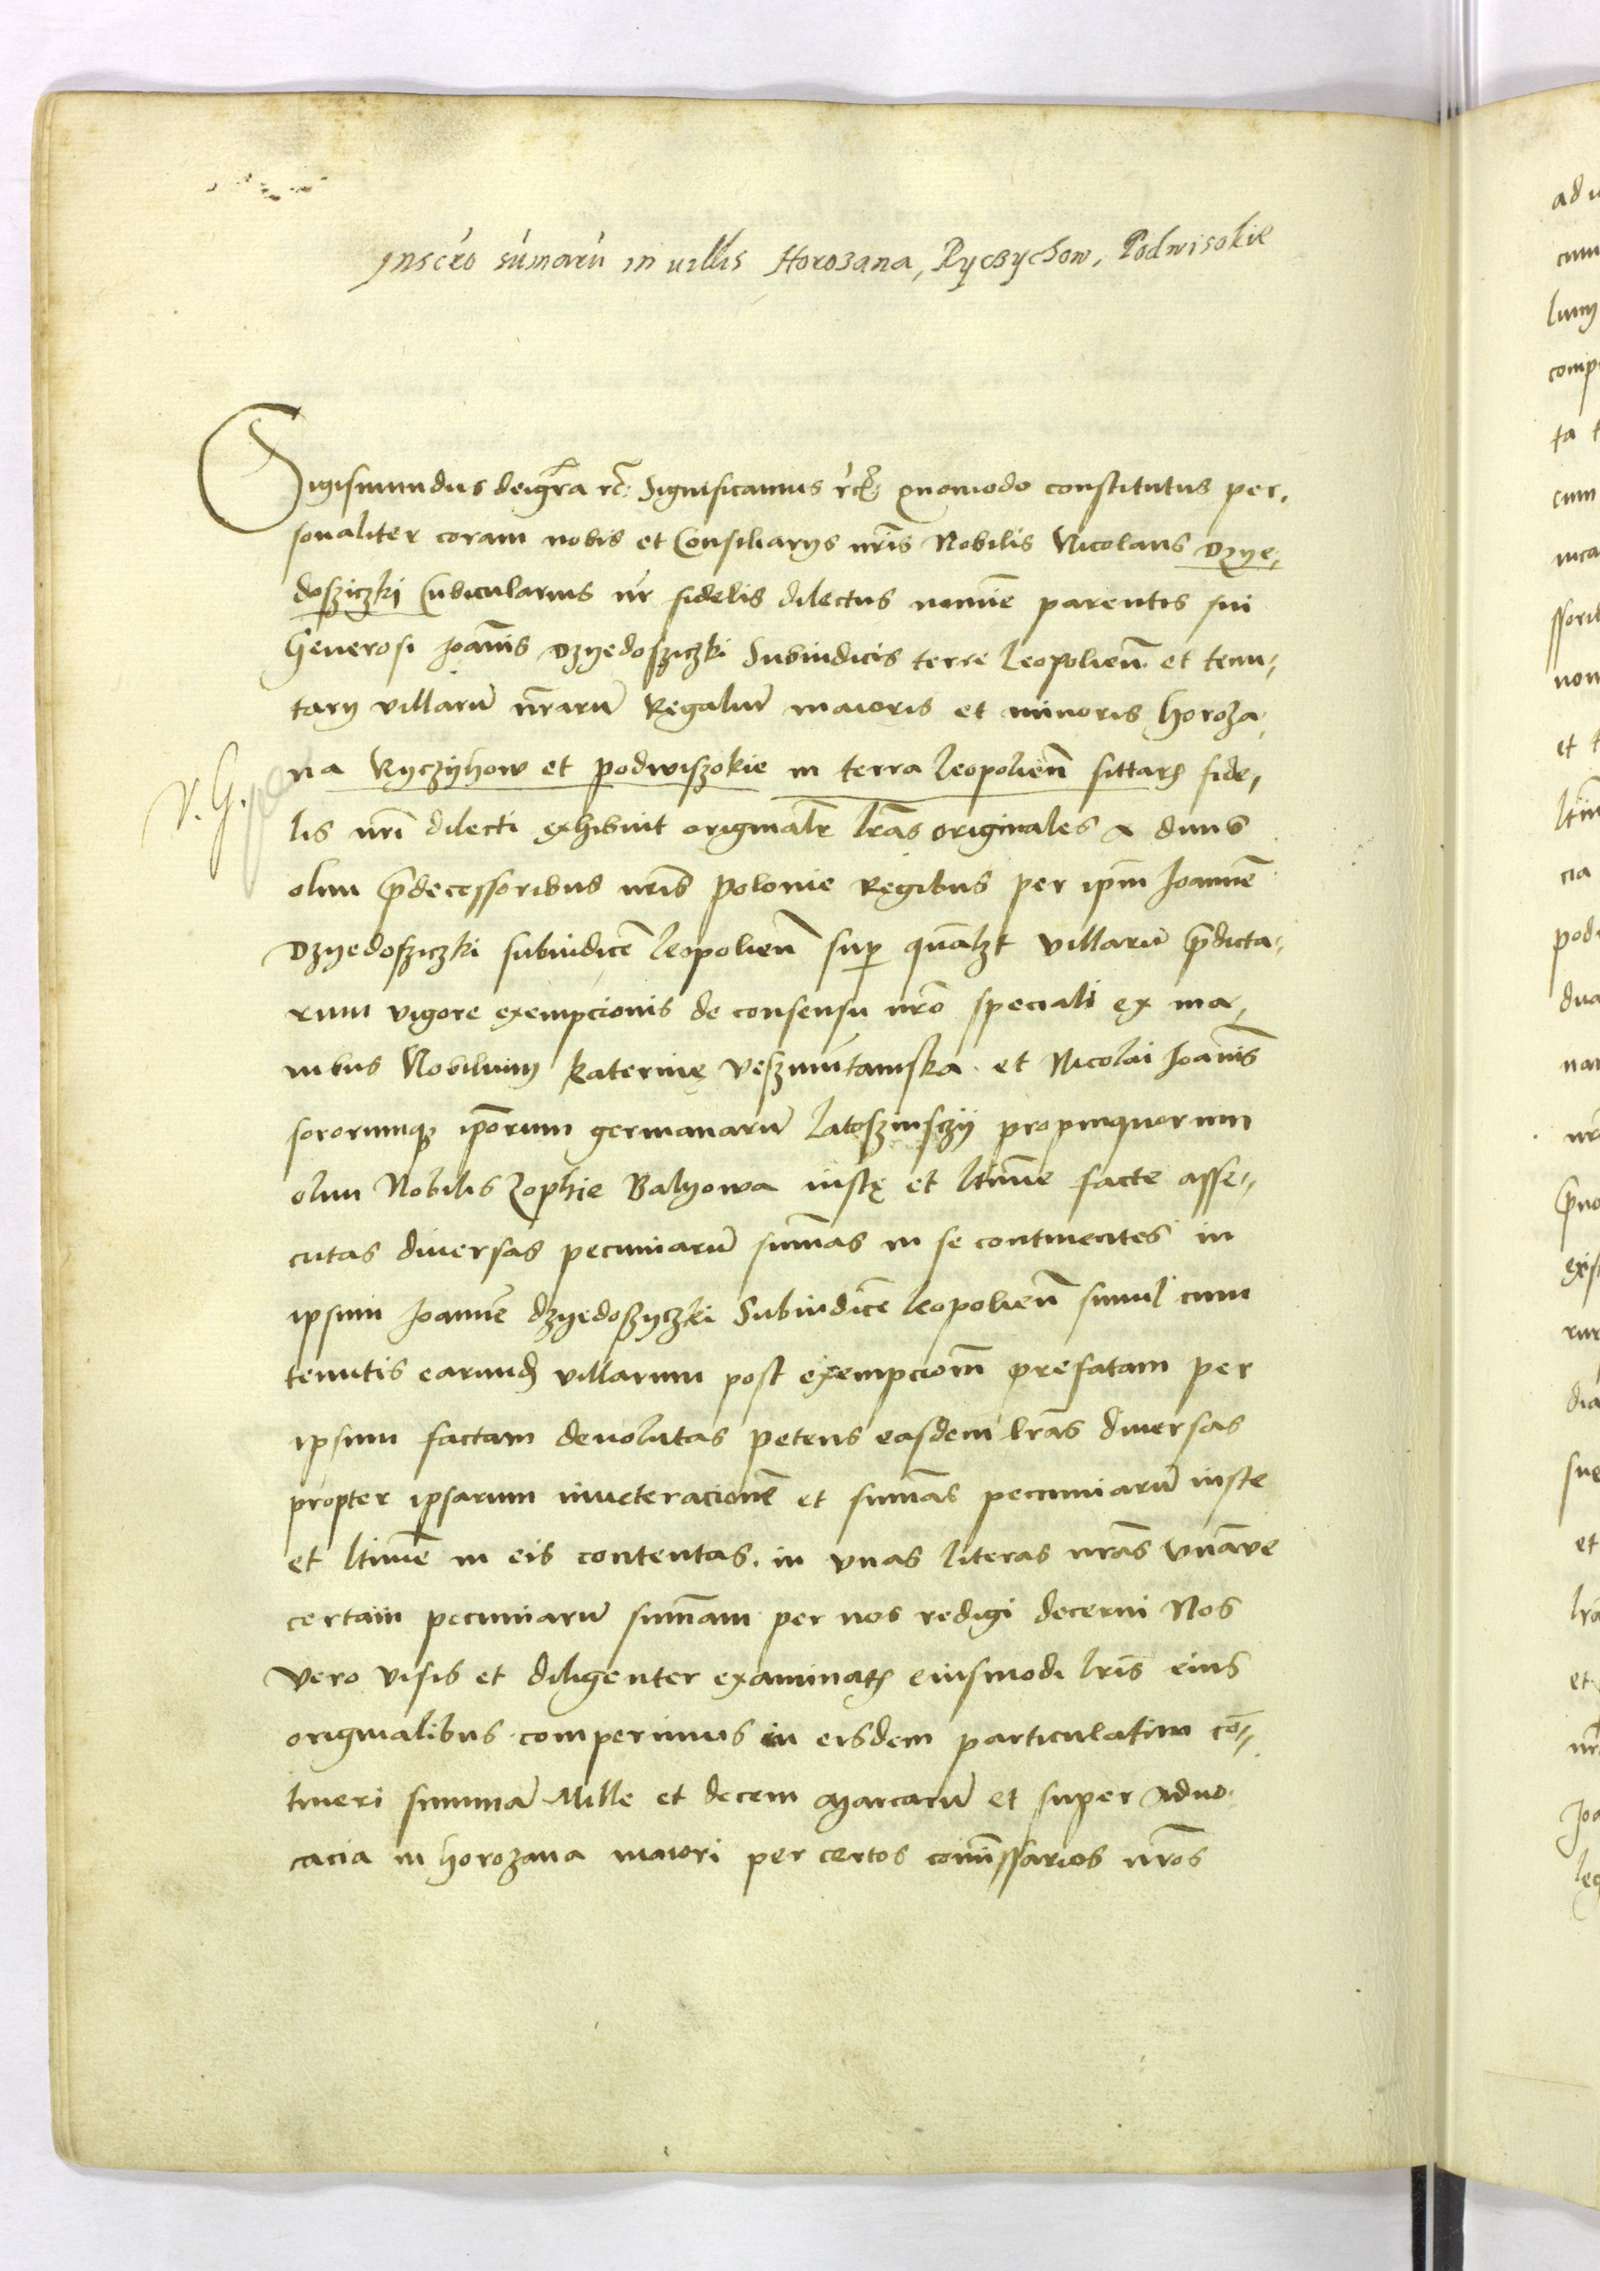 Inscro sumaru in villis Horozana, Ryczychow, Podwisokie
Sigismundus dei gra rc. Significamus rc. quomodo constitutus per,
sonaliter coram nobis et Consiliarys nris Nobilis Nicolaus Dzye,
dosziczki Cubicularius nr fidelis dilectus nomine parentis sui
Generosi Joannis Dzyedosziczki Subiudicis terre Leopolien et tenu,
tary villaru nraru Regaliu maioris et minoris Horoza,
V. G.
na Ryczyhow et podwiszokie in terra Leopolien sittarz fide,
lis nri dilecti exhibuit originalr lras originales a diuis
olim predecessoribus nris Polonie Regibus per ipm Joannem
Dzyedosziczki subiudice Leopolien sup villaru predicta,
rum vigore exempcionis de consensu nro speciali ex ma,
nibus Nobilium Katerine et Nicolai Joannis
sororumque iporum germanaru Latoszinsczy propinquorum
olim Nobilis Zophie Balyowa iuste et ltime facte asse,
cutas diuersas pecuniaru sumas in se continentes in
ipsum Joanne Dzyedoszyczki Subiudice Leopolien simul cum
tenutis earund villarum post exempcionem prefatam per
ipsum factam deuolutas petens easdem lras diuersas
propter ipsarum inueteracione et sumas pecuniaru iuste
et ltime in eis contentas. in vnas literas nras vnamve
certam pecuniaru sumam per nos redigi decerni Nos
vero visis et diligenter examinatz eiusmodi lris eius
originalibus comperimus in eisdem particulatim con,
tineri summa Mille et decem Marcaru et super aduo,
cacia in horozana maiori per certos comissarios nros